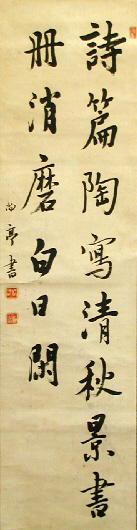 詩篇陶寫清秋景書
冊消磨白日閑
尚亭書